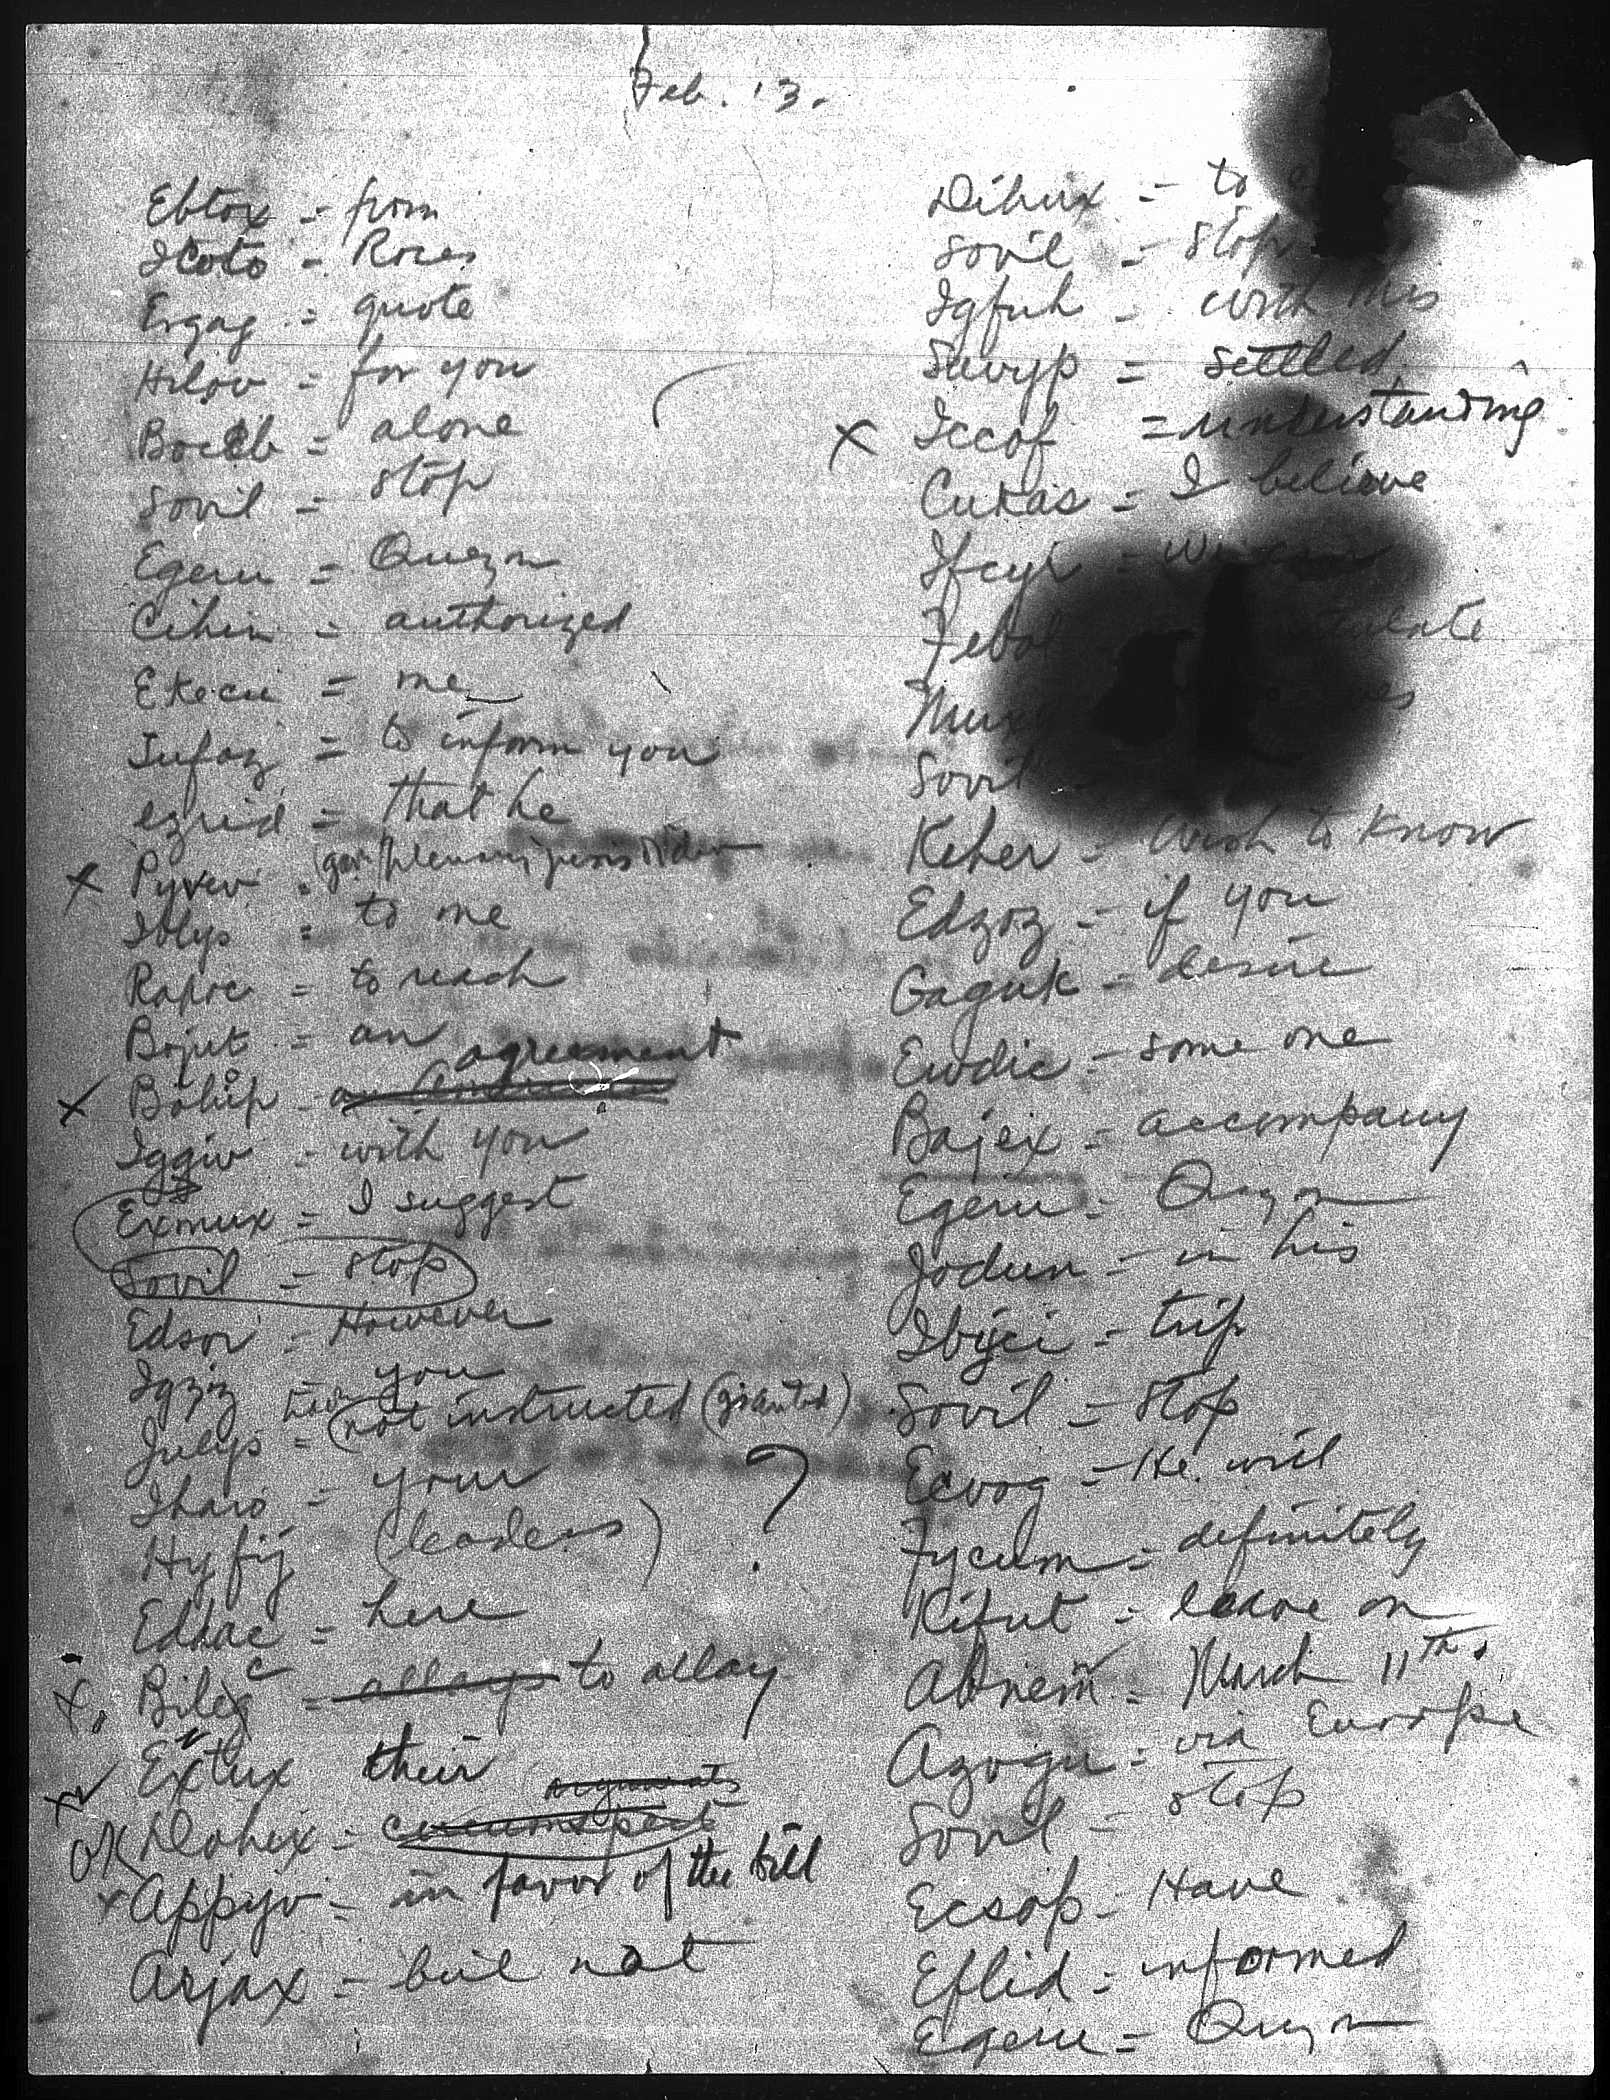 Feb. 13.
Ebtox = from
Itoto = Roxas
Ergag = quote
Hilov = for you
Bocib = alone
Sovil = stop
Egeru = Quezon
Cihin = authorized
Ekecu = me
Jufoz = to inform you
ezrid = that he
x Pyvev =
Iblys = to me
Rapoc = to reach
Bojut = an
agreement
x Bohip -
Iggiv = with you
Exmux = I suggest
Sovil = stop
Edsor = However
Igziz = you
Julys = not instructed (granted)
Iharo = your
Hyfij (leaders) ?
Edhac = here
x. Bilec = allays to allay
x Extux their
arguments
OK Dohix =
x Appyv = in favor of the bill
Arjax = but not
Dihux = to
Sovil = stop
Igfuh = with this
Suvyp = settled
x Iccof = understanding
Cukas = I believe
Ifcyr =
Sovil
Keher = wish to know
Edzoz = if you
Gaguk = desire
Erodic = some one
Bajex = accompany
Egeru = Quezon
Jodun = in his
Ibyci = trip
Sovil = stop
Ecvog = He will
Fycum = definitely
Kifut = leave on
Abnem = March 11th.
Azogu = via Europe
Sovil = stop
Ecsop = Have
Eflid = informed
Egeru = Quezon